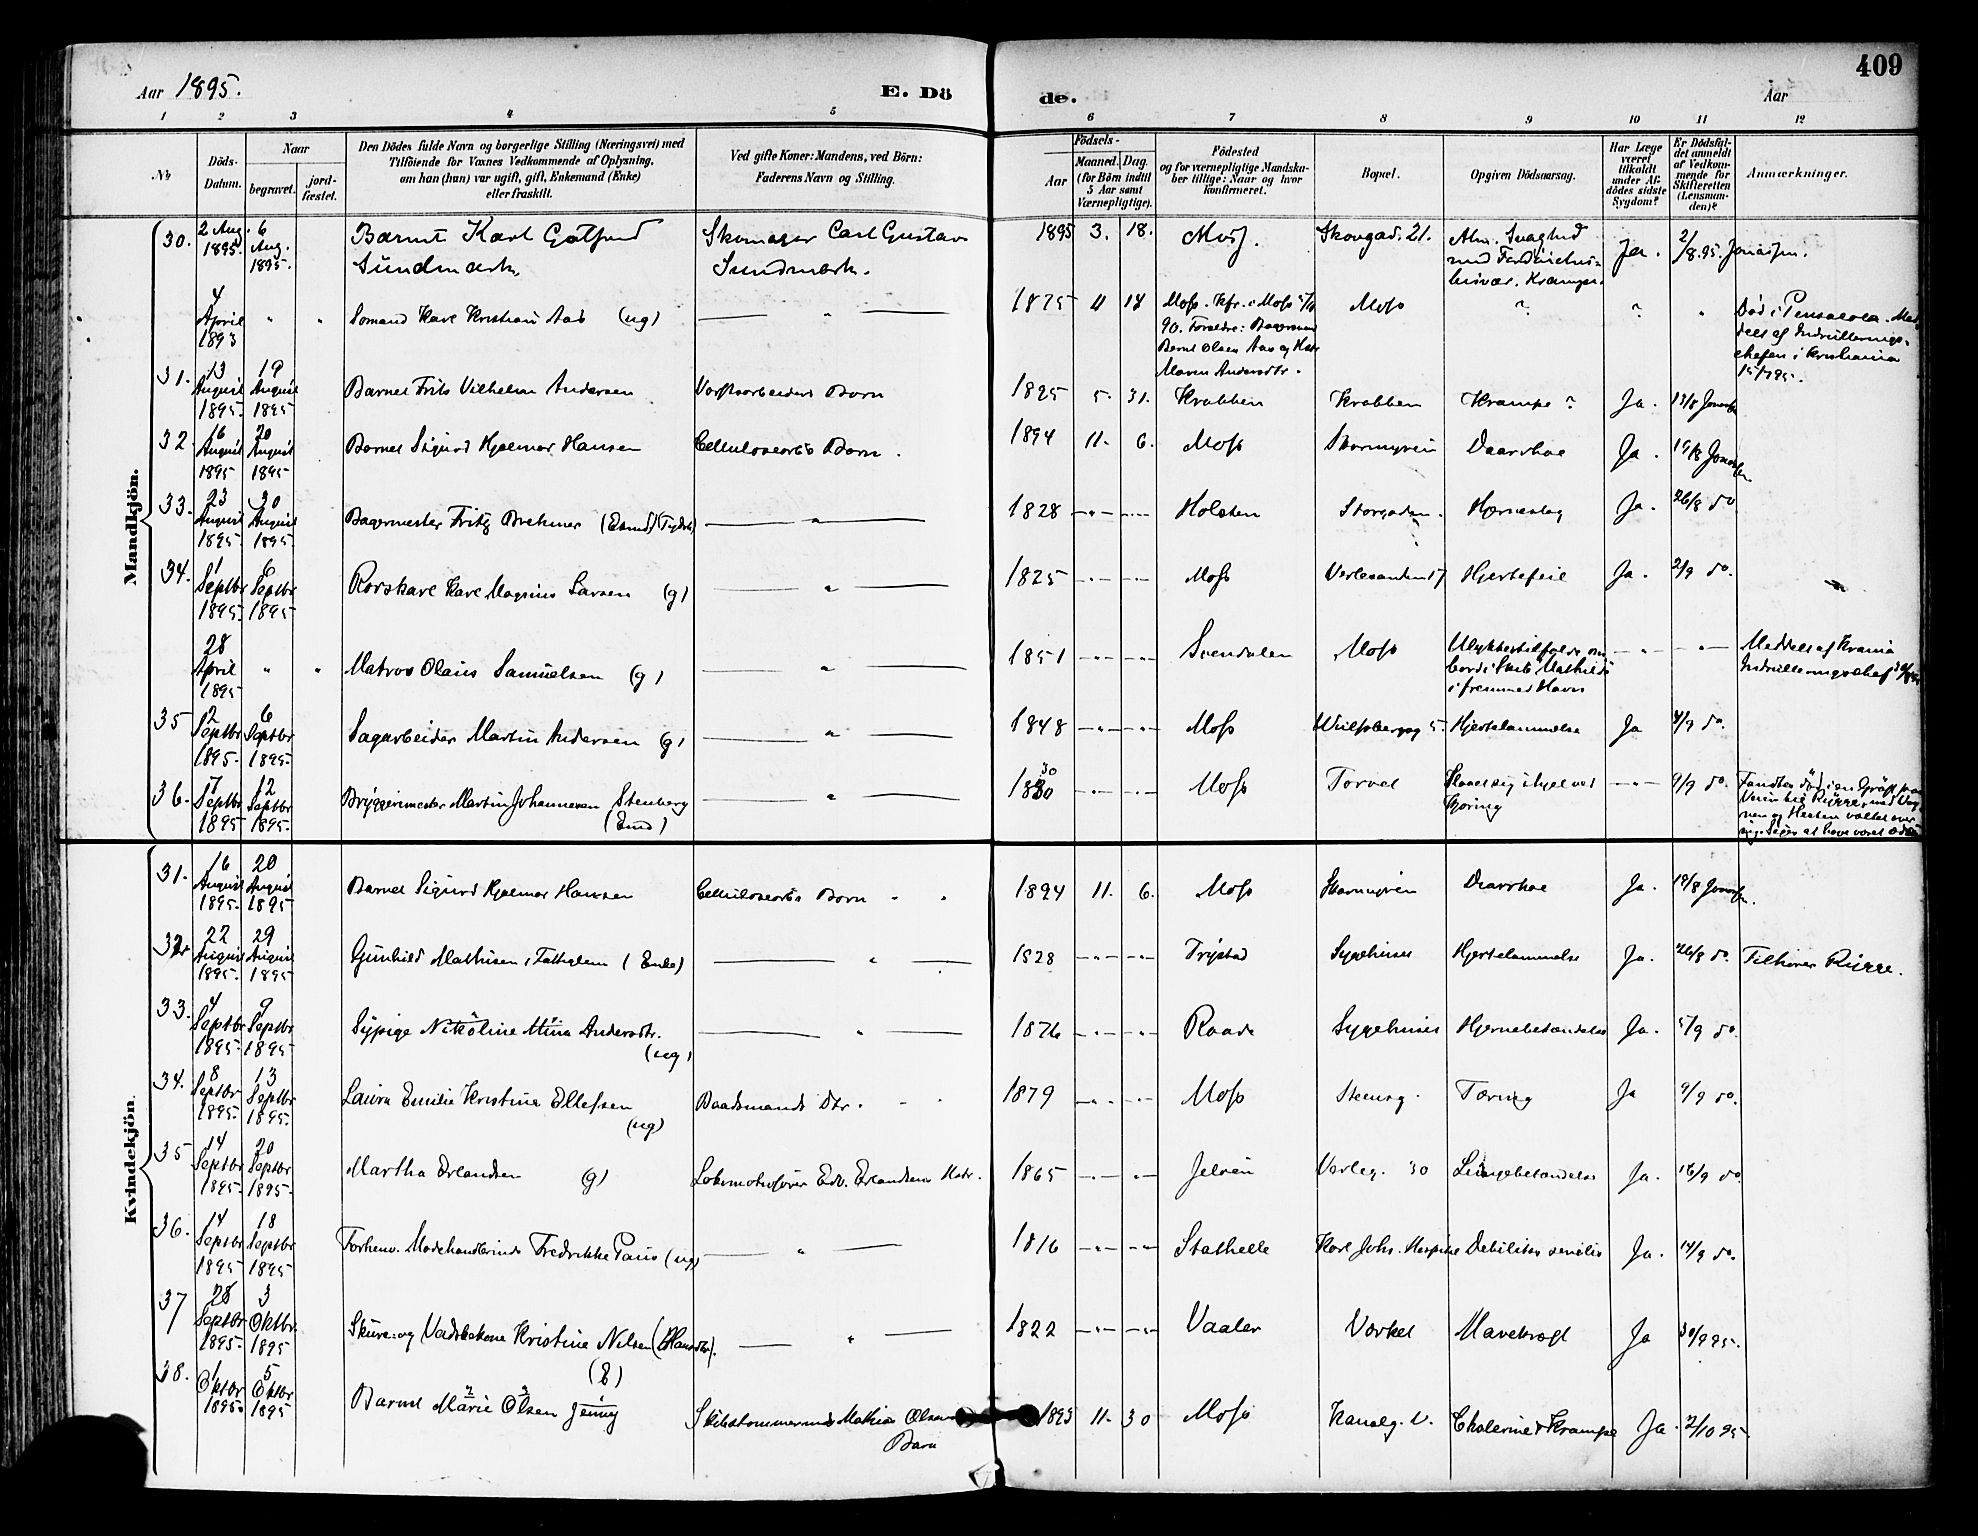 409
Aar 1895.
E. Dö
de.
Aar
1 2 3 4 5 6 7 8 9 10 11 12
No
Döds-Datum.
Naar
begravet.
jord-fæstet.
Den Dödes fulde Navn og borgerlige Stilling (Næringsvei) med
Tilföiende for Voxnes Vedkommende af Oplysning,
om han (hun) var ugift, gift, Enkemand (Enke)
eller fraskilt.
Ved gifte Koner: Mandens, ved Börn:
Faderens Navn og Stilling.
Födsels-
Aar
Maaned. Dag.
(for Börn indtil
5 Aar samt
Værnepligtige).
Födested
og for værnepligtige Mandska-
ber tillige: Naar og hvor
konfirmeret.
Bopæl.
Opgiven Dödsaarsag.
Har Læge
været
tilkaldt
under Af-
dödes sidste
Sygdom?
Er Dödsfal-
det anmeldt
af Vedkom-
mende for
Skifteretten
(Lensman-
den)?
Anmærkninger.
Mandkjön.
30. 2 Aug. 1895. 6 Aug. 1895. Barnet Karl Gotfred Sundmark Skomager Carl Gustav Sundmark. 1895 3. 18. Moss. Skovgad. 21. Alm. Svaghed med Krampe. Ja. 2/8.95. Jonassen.
4 April 1893 " " Sømand Karl Kristian Aas (ug) " 1875 11 18 Moss. Kfr. i Moss 90. Forældre: Bernt Olsen Aas og Hstr Maren Andersdtr. Moss ? ? " Död i Pensacola. Meddelt af Indrulleringschefen i Kristiania
31. 13 August 1895 19 August 1895 Barnet Frits Vilhelm Andersen Værftsarbeiders Barn 1895 5. 31. Krabben Krabben Krampe ? Ja. 13/8
32. 16 August 1895 20 August 1895 Barnet Sigurd Hjalmar Hansen Cellulosearb's Barn. 1894 11. 6. Moss Skarmyren Diarrhoe Ja. 19/8 Jonassen
33. 23 August 1895 30 August 1895. Bagermester Fritz Brehmer (Enmd) " 1828 " " Holsten Storgaden. Hjerneslag Ja. 26/8 do
34. 1 Septbr 1895. 6 Septbr 1895 Rorskarl Karl Magnus Larsen (g) " 1825 " " Moss Verlesanden 17 Hjertefeil Ja. 2/9 do.
28 April 1895 " " Matros Olaus Samuelsen (g) " 1851 " " Svendalen Moss Ulykkestilfælde ombord i Skib "Mathilde" i fremmed Havn " " Meddelt af Krania Indrulleringschef
35 2 Septbr 1895. 6 Septbr 1895. Sagarbeider Martin Andersen (g) " 1848 " " Moss 5. Hjertelammelse Ja 4/9 do.
36. 7 Septbr 1895 12 Septbr 1895. Bryggerimester Martin Johannesen Stenberg (Enmd) " 1830 30 " " Moss Torvet Slaaet sig ihjel ved Kjøring " 9/9 do. Fandtes död i en Gröft
Kvindekjön.
31. 16 August 1895. 20 August 1895 Barnet Sigurd Hjalmar Hansen Cellulosearb's Barn " " 1894 11. 6. Moss Skarmyren Diarrhoe Ja. 19/8 Jonassen.
32. 22 August 1895. 29 August 1895 Gunhild Mathisen, (Enke) " 1828 " " Trøgstad Sygehuset Hjertelammelse Ja. 26/8 do. Tilhører Rygge.
33. 4 Septbr 1895. 9 Septbr 1895 Sypige Nikoline Mina Andersdtr. (ug) " 1876 " " Raade Sygehuset Hjernebetændelse Ja. 5/9 do.
34. 8 Septbr 1895. 13 Septbr 1895. Laura Emilie Kristine Ellefsen (ug) Baadsmands Dtr. " " 1879 " " Moss Stensg. Tæring Ja 9/9 do.
35 14 Septbr 1895. 20 Septbr 1895. Martha Erlandsen (g) Lokomotivfører Edv. Erlandsens Hstr. 1865 " " Jeløen Verleg. 30 Lungebetændelse Ja. 16/9 do.
36. 14 Septbr 1895 18 Septbr 1895 Forhenv. Modehandlerinde Fredrikke Paus (ug) " 1816 " " Stathelle Karl Johs. Hospits Debilitas senilis Ja. 14/9 do.
37 28 Septbr 1895. 3 Oktbr. 1895 Skure- og Vadskekone Kristine Nilsen (Hansdtr). (E) " 1822 " " Vaaler Værket Mavekræft Ja 30/9 95.
38. 1 Oktbr 1895. 5 Oktbr 1895 Barnet Marie Olsen Jenny Skibstømmermand Mathias Olsens Barn 1893 11. 30 Moss Kanalg. Cholerine & Krampe Ja. 2/10 95.